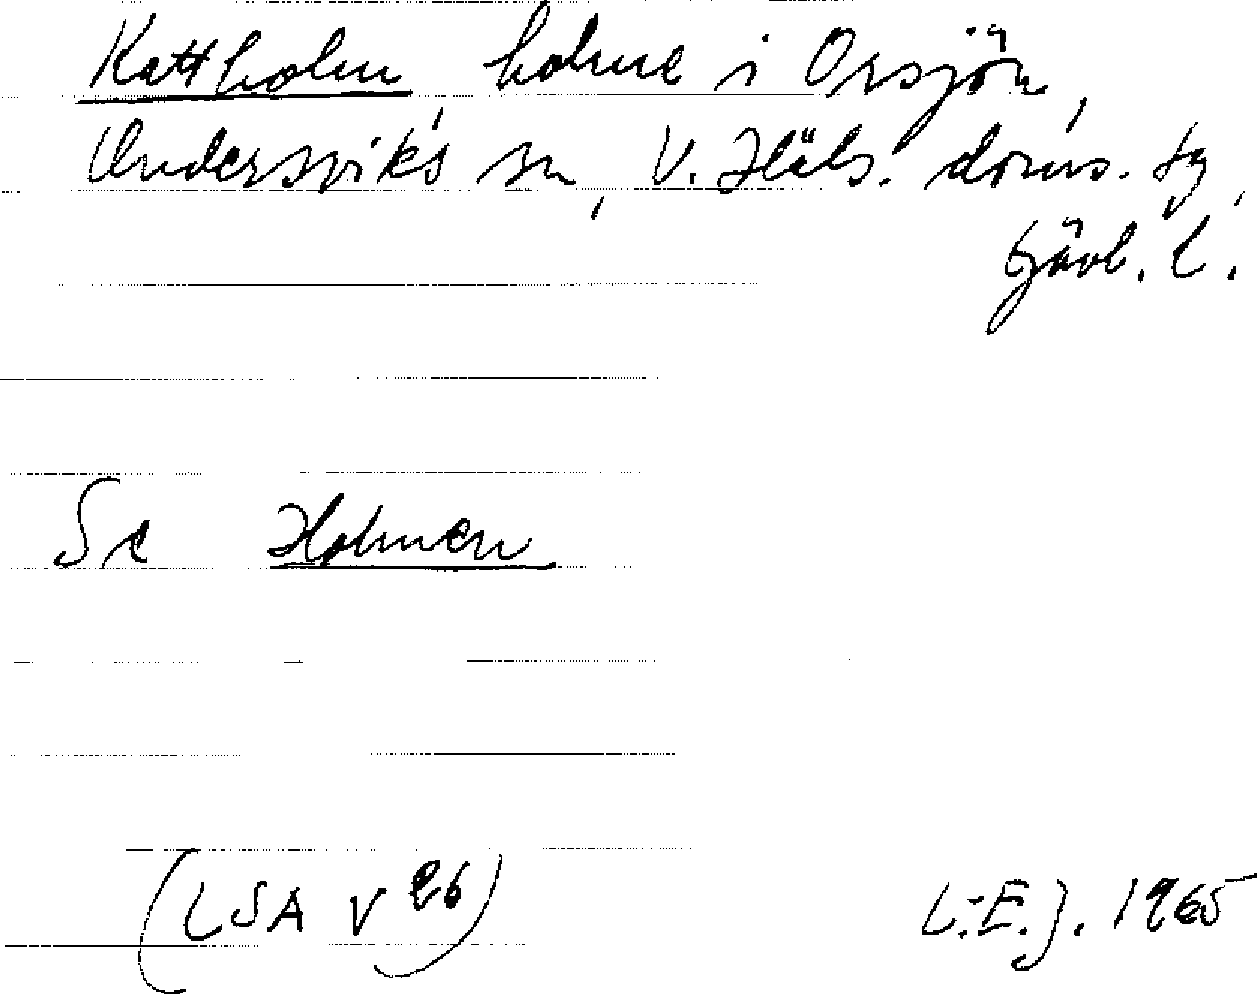 Kattholm, holme i Orsjön,
Undersviks sn, V. Häls. doms. tg,
Gävl. l.
Se Holmen
(LSA V 26) L.-E.J. 1965